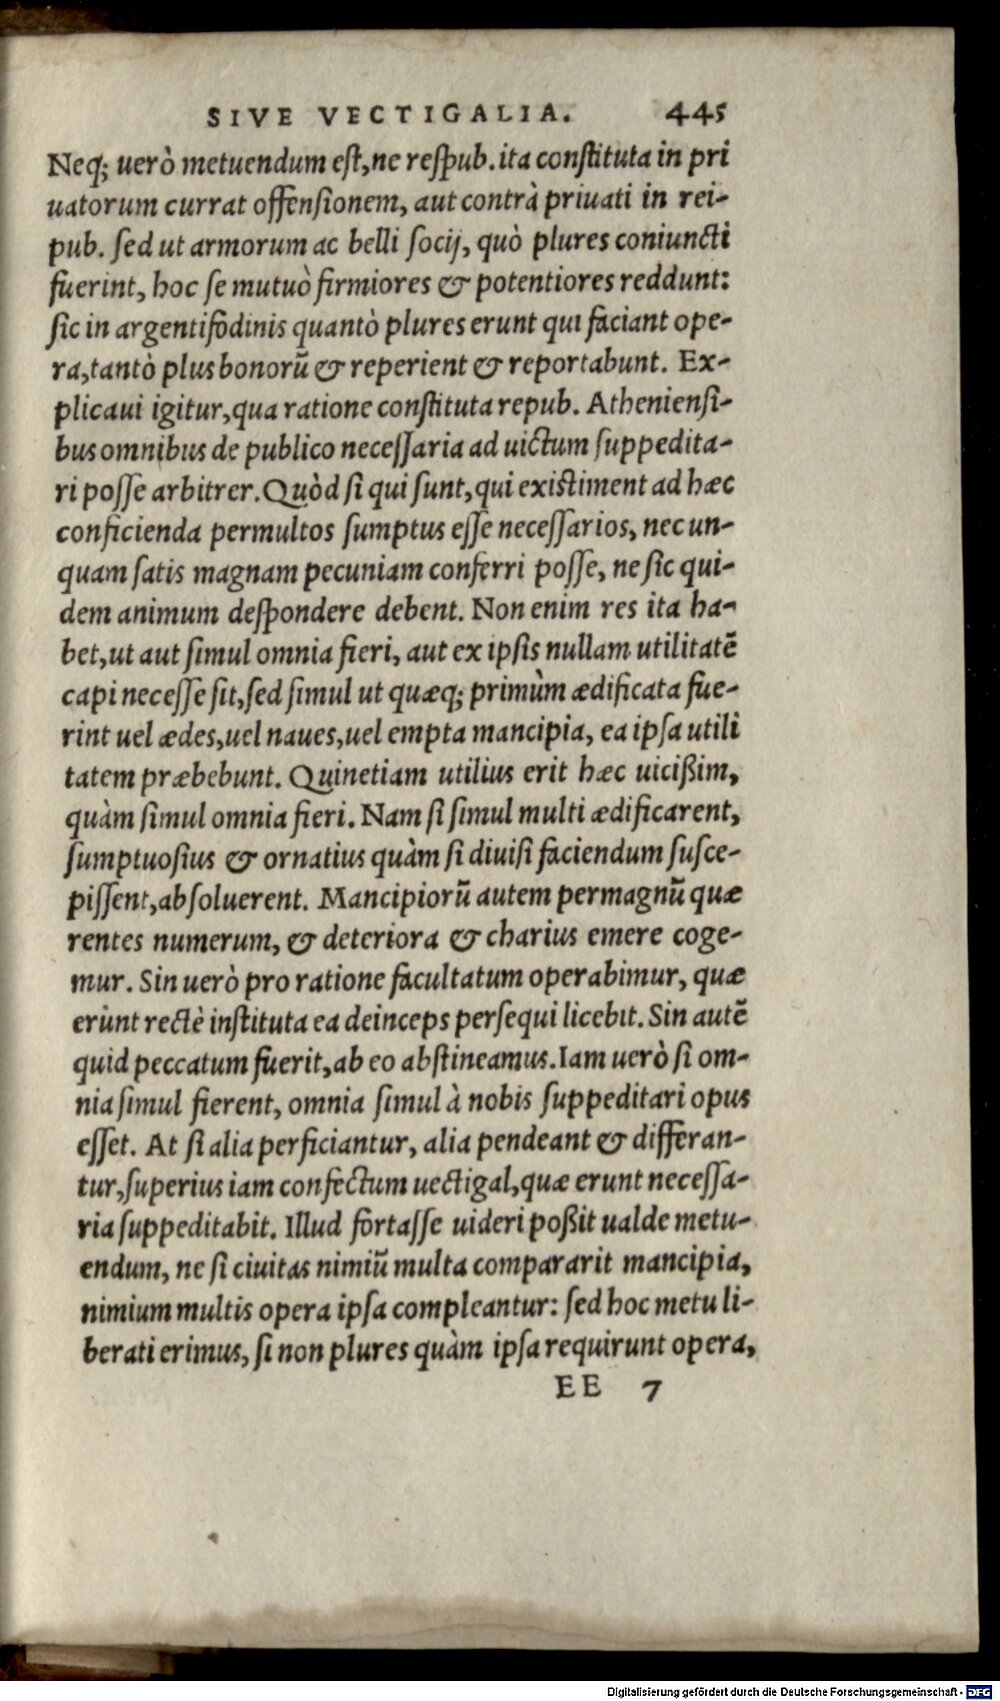 SIVE VECTIGALIA. 445
Neq; uerò metuendum est, ne respub. ita constituta in pri
uatorum currat offensionem, aut contrà priuati in rei-
pub. sed ut armorum ac belli socij, quò plures coniuncti
fuerint, hoc se mutuò firmiores & potentiores reddunt:
sic in argentifodinis quantò plures erunt qui faciant ope-
ra, tantò plus bonorũ & reperient & reportabunt. Ex-
plicaui igitur, qua ratione constituta repub. Atheniensi-
bus omnibus de publico necessaria ad uictum suppedita-
ri posse arbitrer. Quòd si qui sunt, qui existiment ad hæc
conficienda permultos sumptus esse necessarios, nec un-
quam satis magnam pecuniam conferri posse, ne sic qui-
dem animum despondere debent. Non enim res ita ha-
bet, ut aut simul omnia fieri, aut ex ipsis nullam utilitatẽ
capi necesse sit, sed simul ut quæq; primùm ædificata fue-
rint uel ædes, uel naues, uel empta mancipia, ea ipsa utili
tatem præbebunt. Quinetiam utilius erit hæc uicißim,
quàm simul omnia fieri. Nam si simul multi ædificarent,
sumptuosius & ornatius quàm si diuisi faciendum susce-
pissent, absoluerent. Mancipiorũ autem permagnũ quæ
rentes numerum, & deteriora & charius emere coge-
mur. Sin uerò pro ratione facultatum operabimur, quæ
erunt rectè instituta ea deinceps persequi licebit. Sin autẽ
quid peccatum fuerit, ab eo abstineamus. Iam uerò si om-
nia simul fierent, omnia simul à nobis suppeditari opus
esset. At si alia perficiantur, alia pendeant & differan-
tur, superius iam confectum uectigal, quæ erunt necessa-
ria suppeditabit. Illud fortasse uideri poßit ualde metu-
endum, ne si ciuitas nimiũ multa compararit mancipia,
nimium multis opera ipsa compleantur: sed hoc metu li-
berati erimus, si non plures quàm ipsa requirunt opera,
EE 7
Digitalisierung gefördert durch die Deutsche Forschungsgemeinschaft - DFG